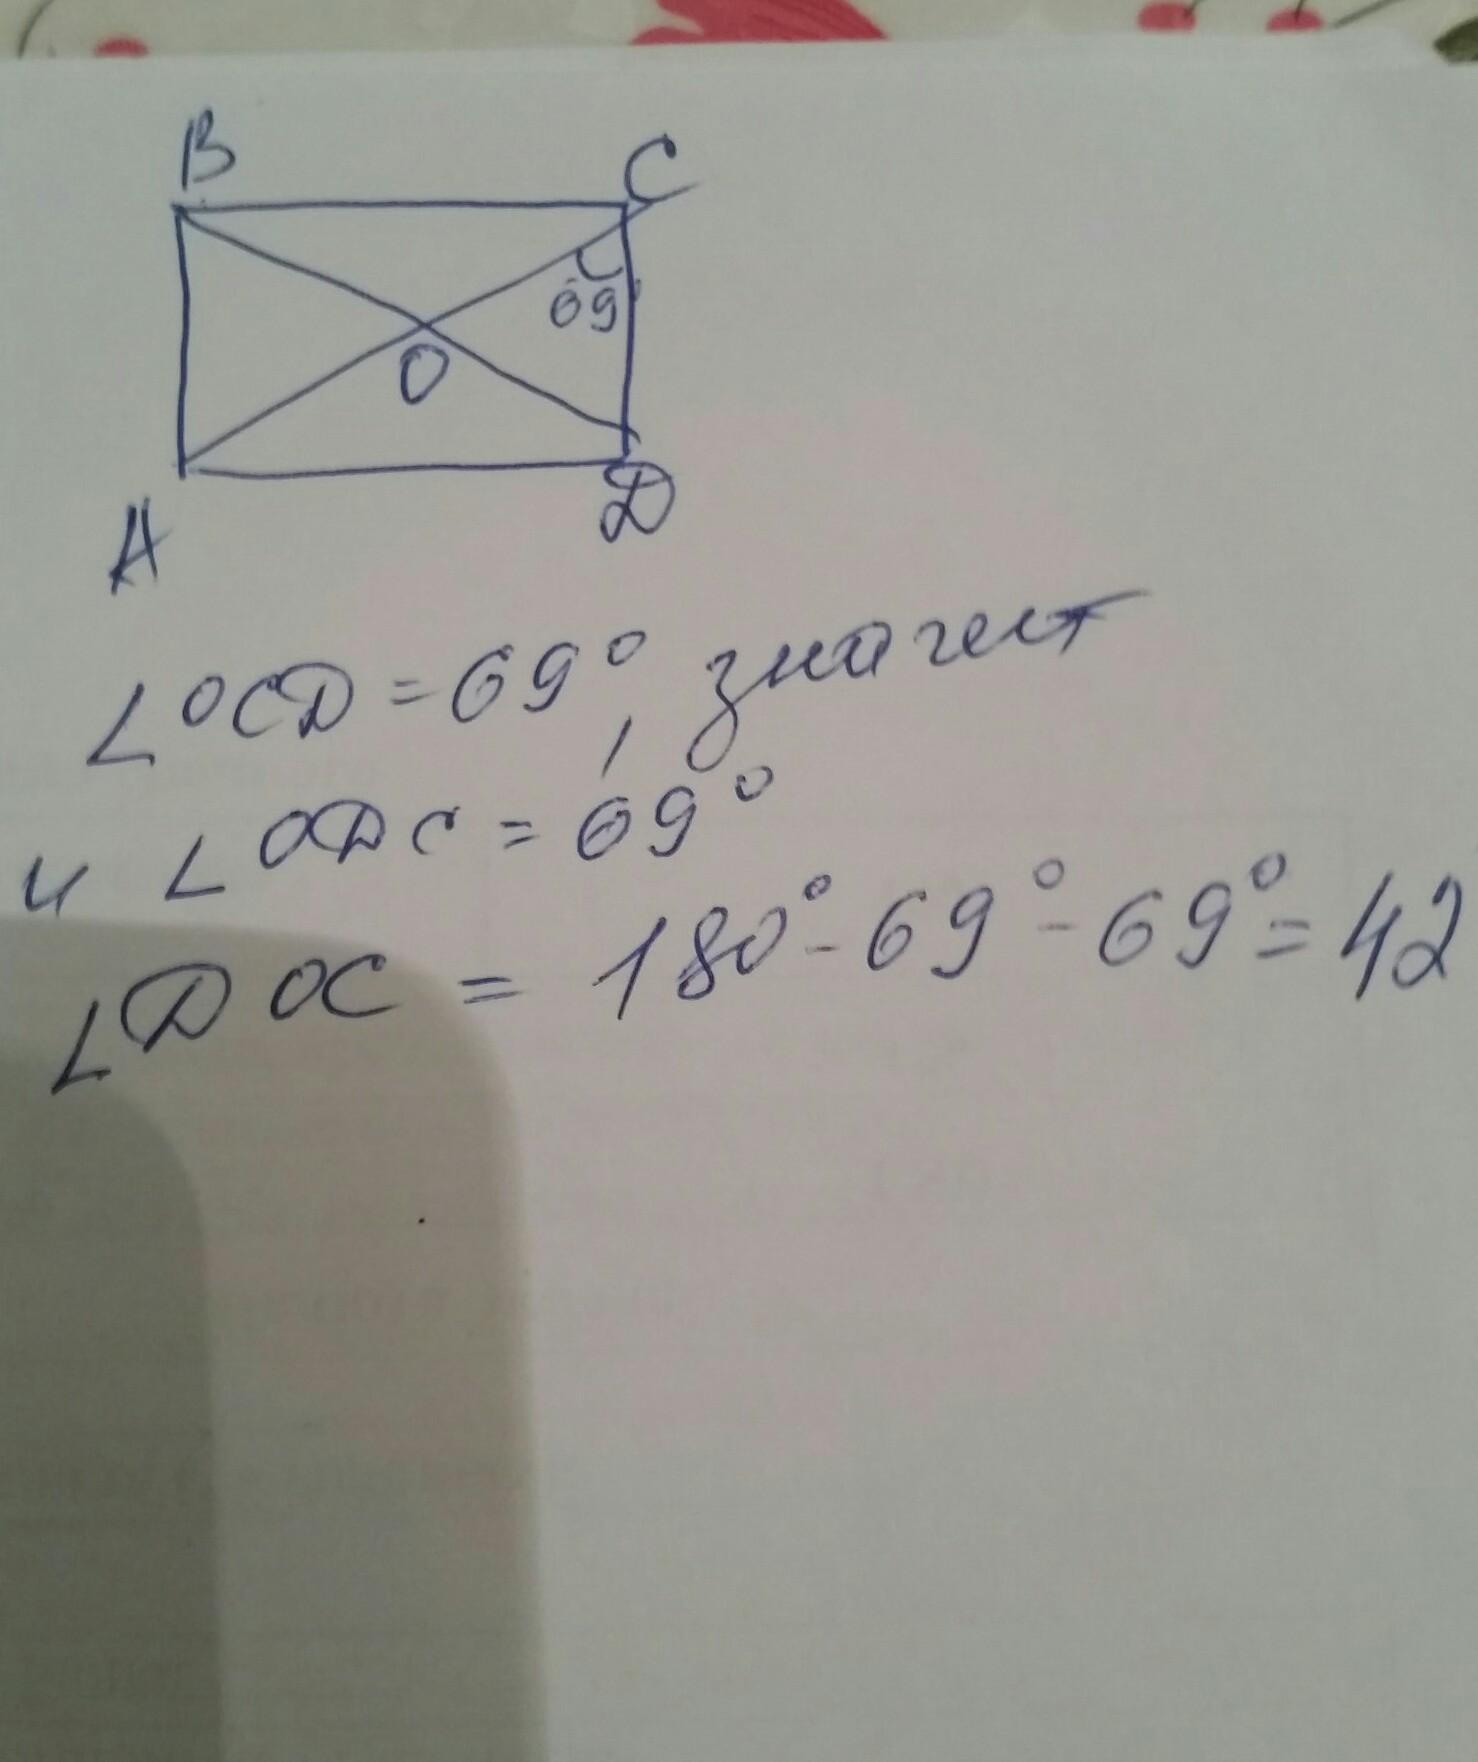 B
C
69°
O
A
D
∠OCD = 69°, значит
и ∠ODC = 69°
∠DOC = 180° - 69° - 69° = 42